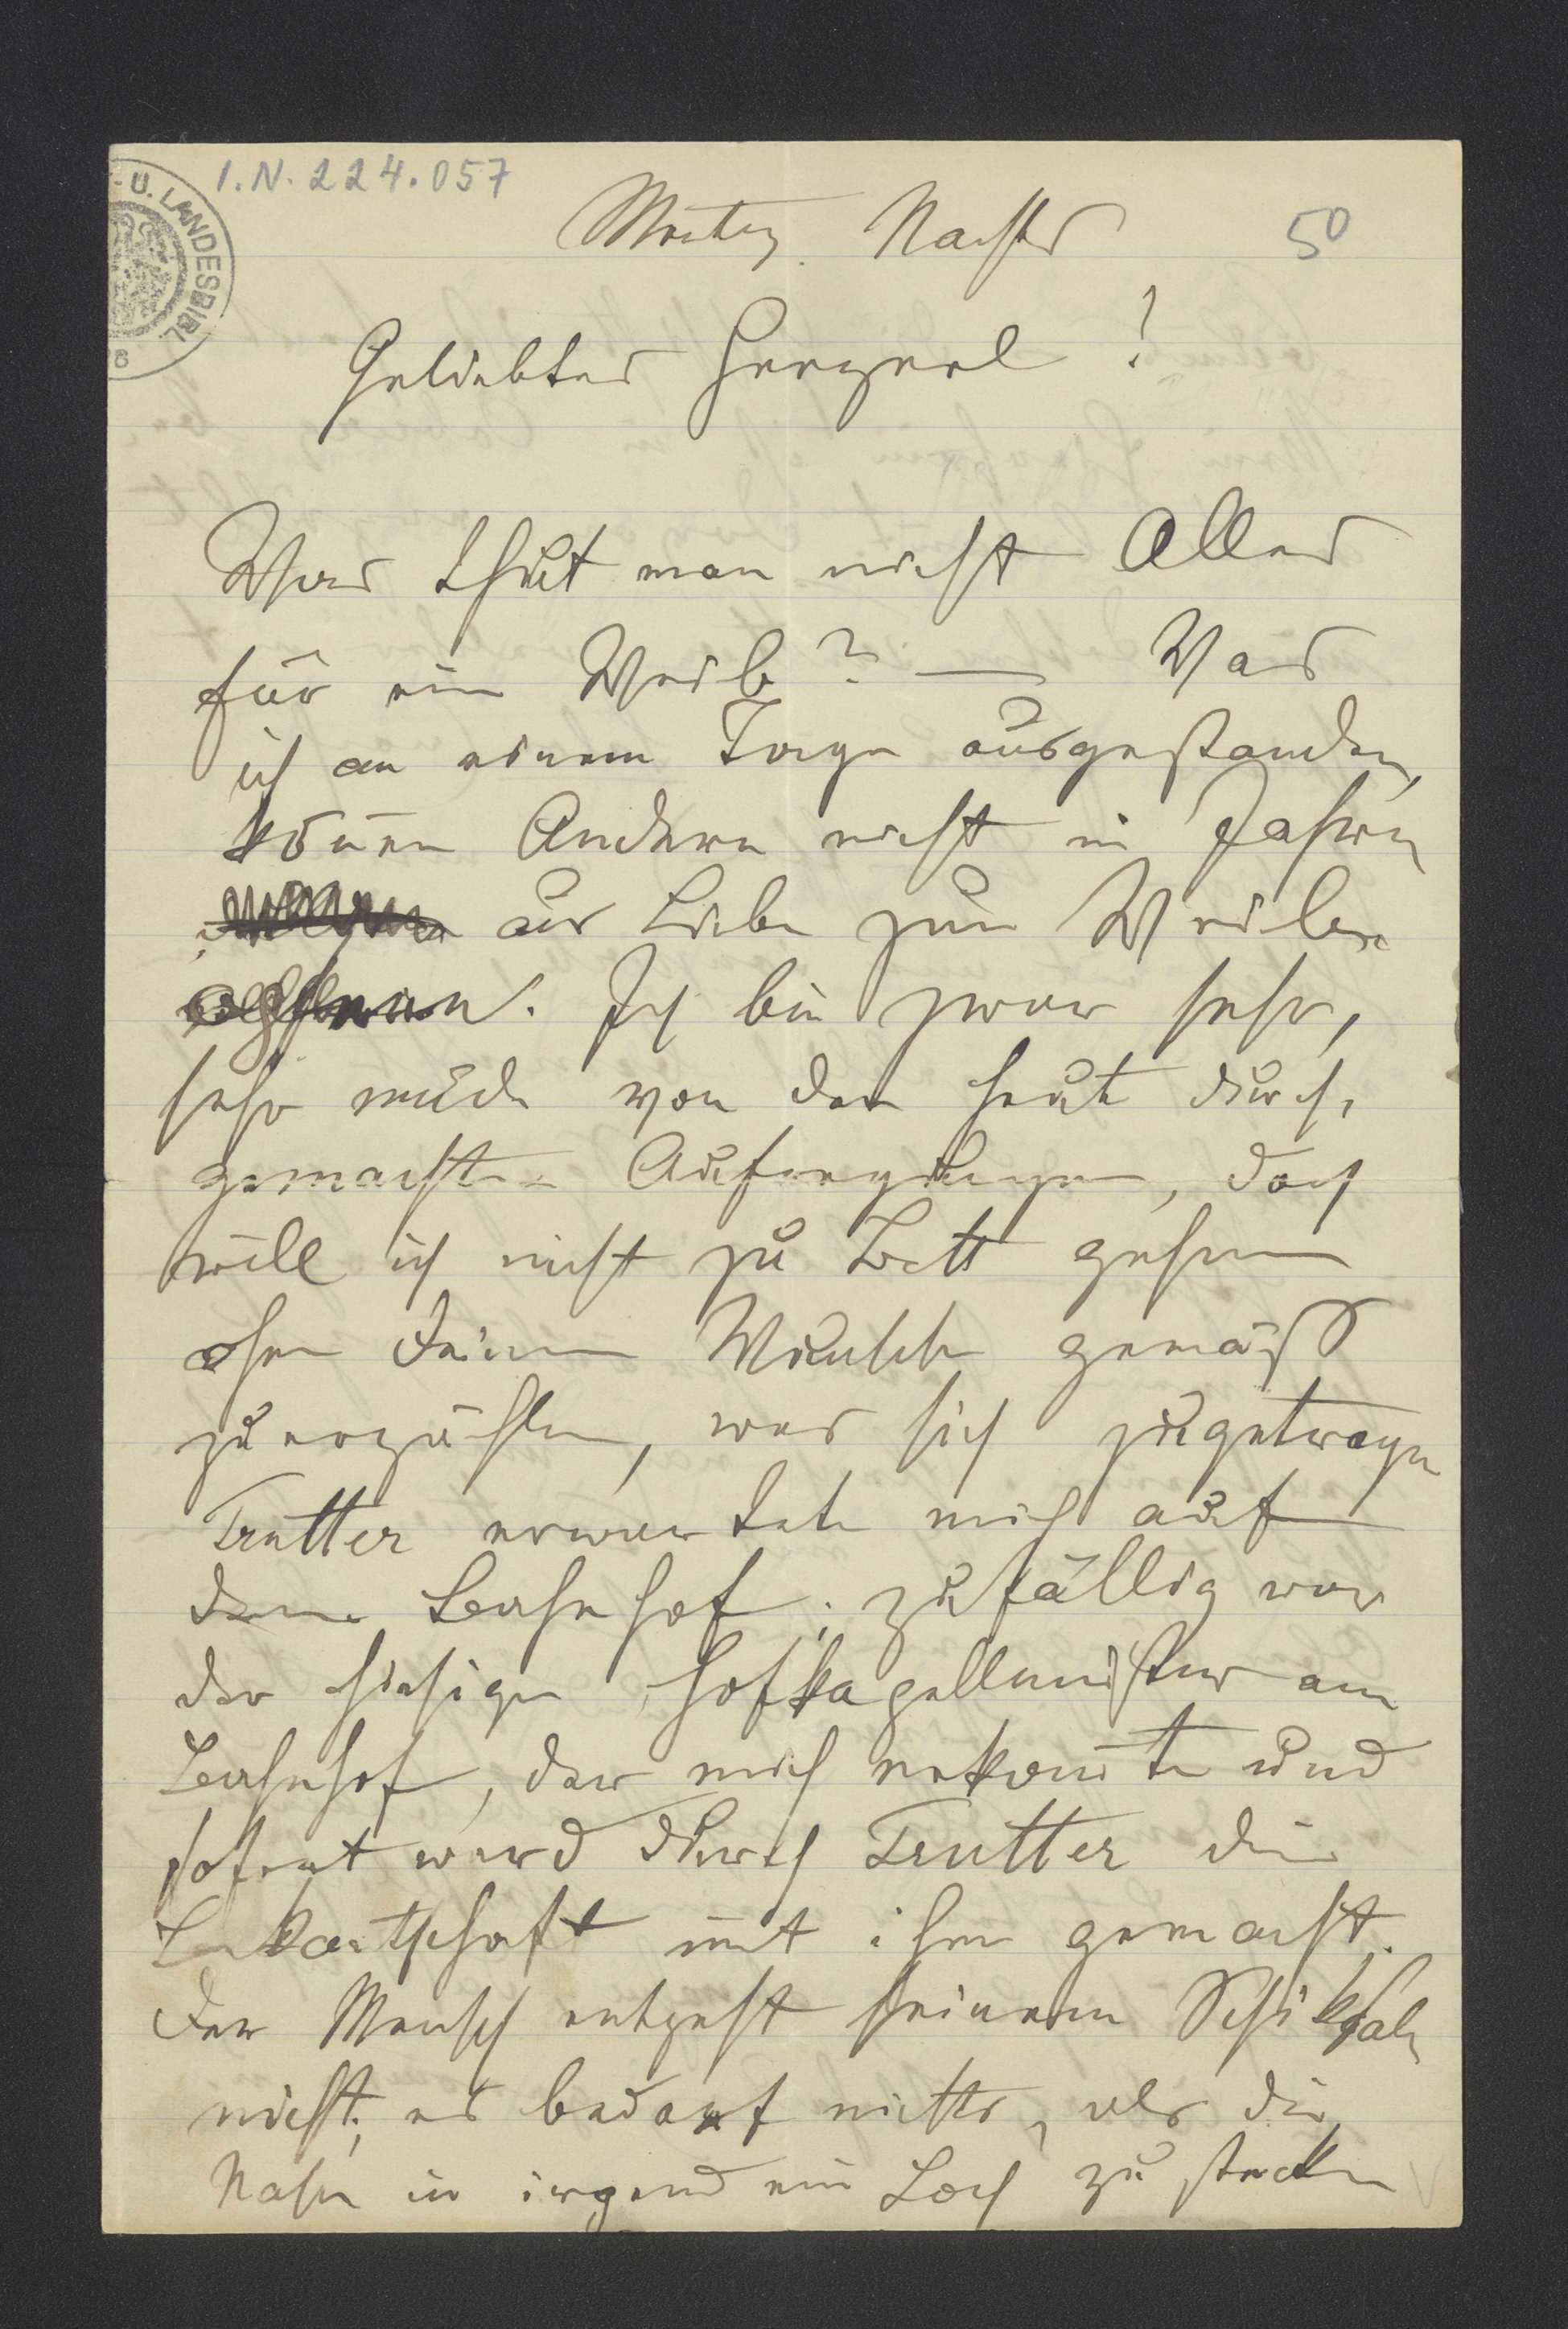 I.N. 224.057
U. LANDESBIBL
Montag Nachts
50
Geliebtes Herzerl!
Was thut man nicht Alles
für ein Weib? — Was
ich an einem Tage ausgestanden,
können Andere nicht in Jahren
aus Liebe zum Weibe
. Ich bin zwar sehr,
sehr müde von den heute durch-
gemachten Aufregungen, doch
will ich nicht zu Bett gehen
ohne Deinem Wunsche gemäß
zu erzählen, was sich zugetragen
Trutter erwartete mich auf
dem Bahnhof; zufällig war
der hiesige Hofkapellmeister am
Bahnhof, der mich erkannte und
sofort ward durch Trutter die
Bekantschaft mit ihm gemacht.
Der Mensch entgeht seinem Schiksale
nicht; es bedarf nichts, als die
Nase in irgend ein Loch zu stecken